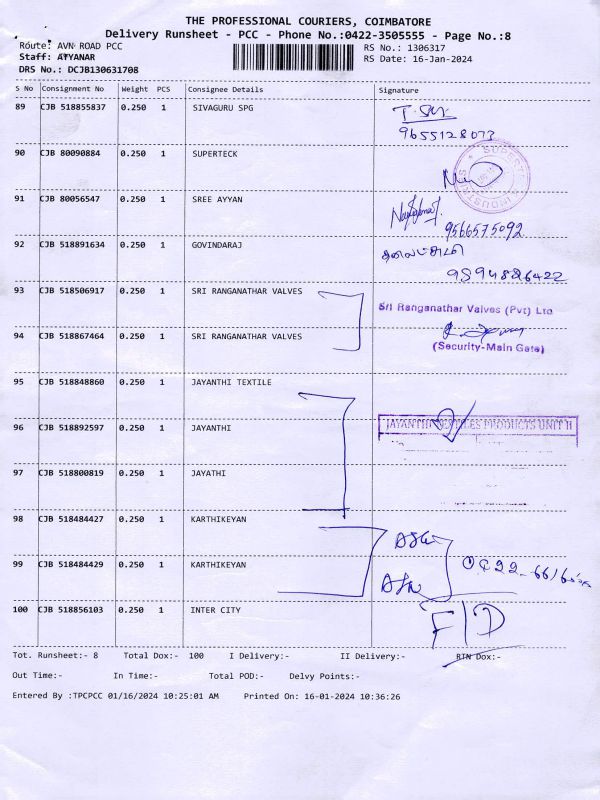 THE PROFESSIONAL COURIERS, COIMBATORE
Delivery Runsheet - PCC - Phone No.:0422-3505555 - Page No.:8
Route: AVN ROAD PCC
RS No.: 1306317
Staff: AYYANAR
RS Date: 16-Jan-2024
DRS No.: DCJB130631708
S No Consignment No Weight PCS Consignee Details Signature
89 CJB 518855837 0.250 1 SIVAGURU SPG
9655128073
90 CJB 80090884 0.250 1 SUPERTECK
91 CJB 80056547 0.250 1 SREE AYYAN
9566575092
92 CJB 518891634 0.250 1 GOVINDARAJ
9894886422
93 CJB 518506917 0.250 1 SRI RANGANATHAR VALVES
Sri Ranganathar Valves (Pvt) Ltd
94 CJB 518867464 0.250 1 SRI RANGANATHAR VALVES
(Security-Main Gate)
95 CJB 518848860 0.250 1 JAYANTHI TEXTILE
96 CJB 518892597 0.250 1 JAYANTHI
JAYANTHI TEXTILES PRODUCTS UNIT II
97 CJB 518800819 0.250 1 JAYATHI
98 CJB 518484427 0.250 1 KARTHIKEYAN
99 CJB 518484429 0.250 1 KARTHIKEYAN
100 CJB 518856103 0.250 1 INTER CITY
F/D
Tot. Runsheet:- 8 Total Dox:- 100 I Delivery:- II Delivery:- RTN Dox:-
Out Time:- In Time:- Total POD:- Delvy Points:-
Entered By :TPCPCC 01/16/2024 10:25:01 AM Printed On: 16-01-2024 10:36:26